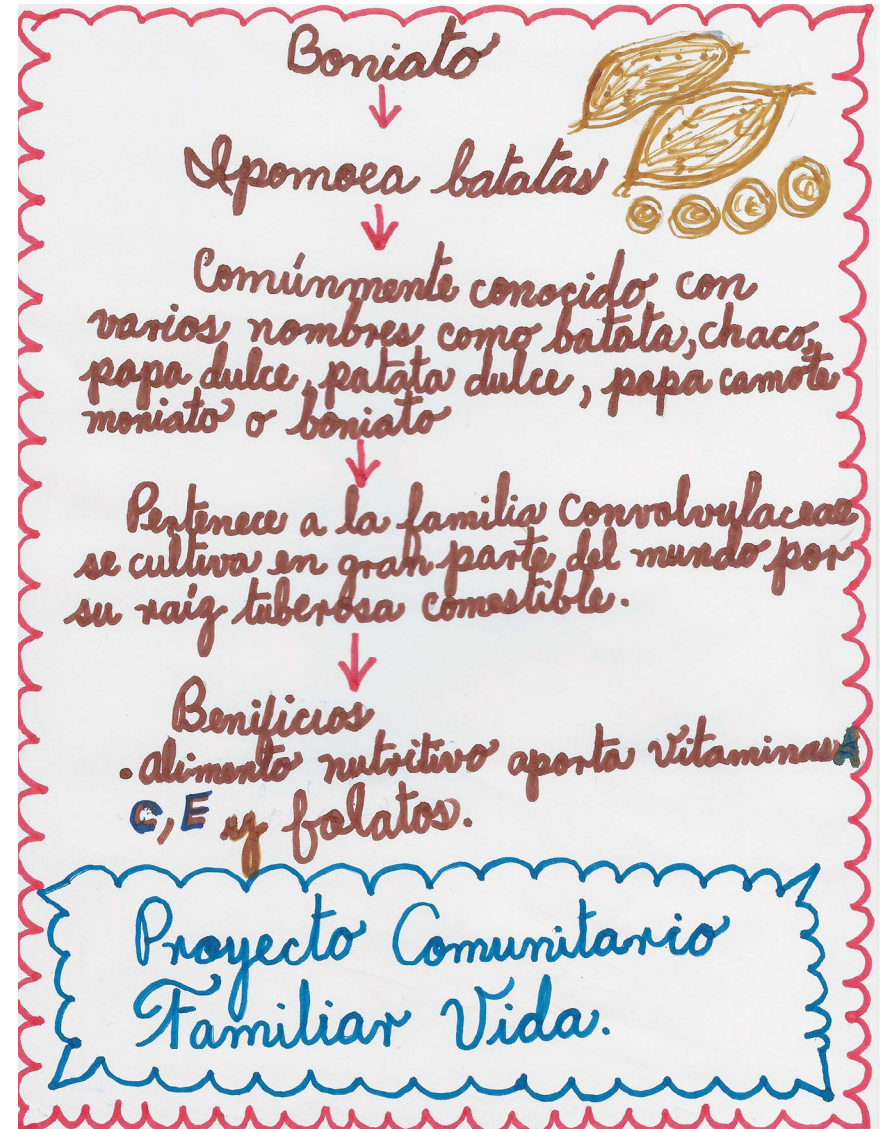 Boniato
Ipomoea batatas
Comúnmente conocido con
varios nombres como batata, chaco,
papa dulce, patata dulce, papa camote
moniato o boniato
Pertenece a la familia Convolvulaceae
se cultiva en gran parte del mundo por
su raíz tuberosa comestible.
Benificios
. alimento nutritivo aporta vitaminas A
C, E y folatos.
Proyecto Comunitario
Familiar Vida.